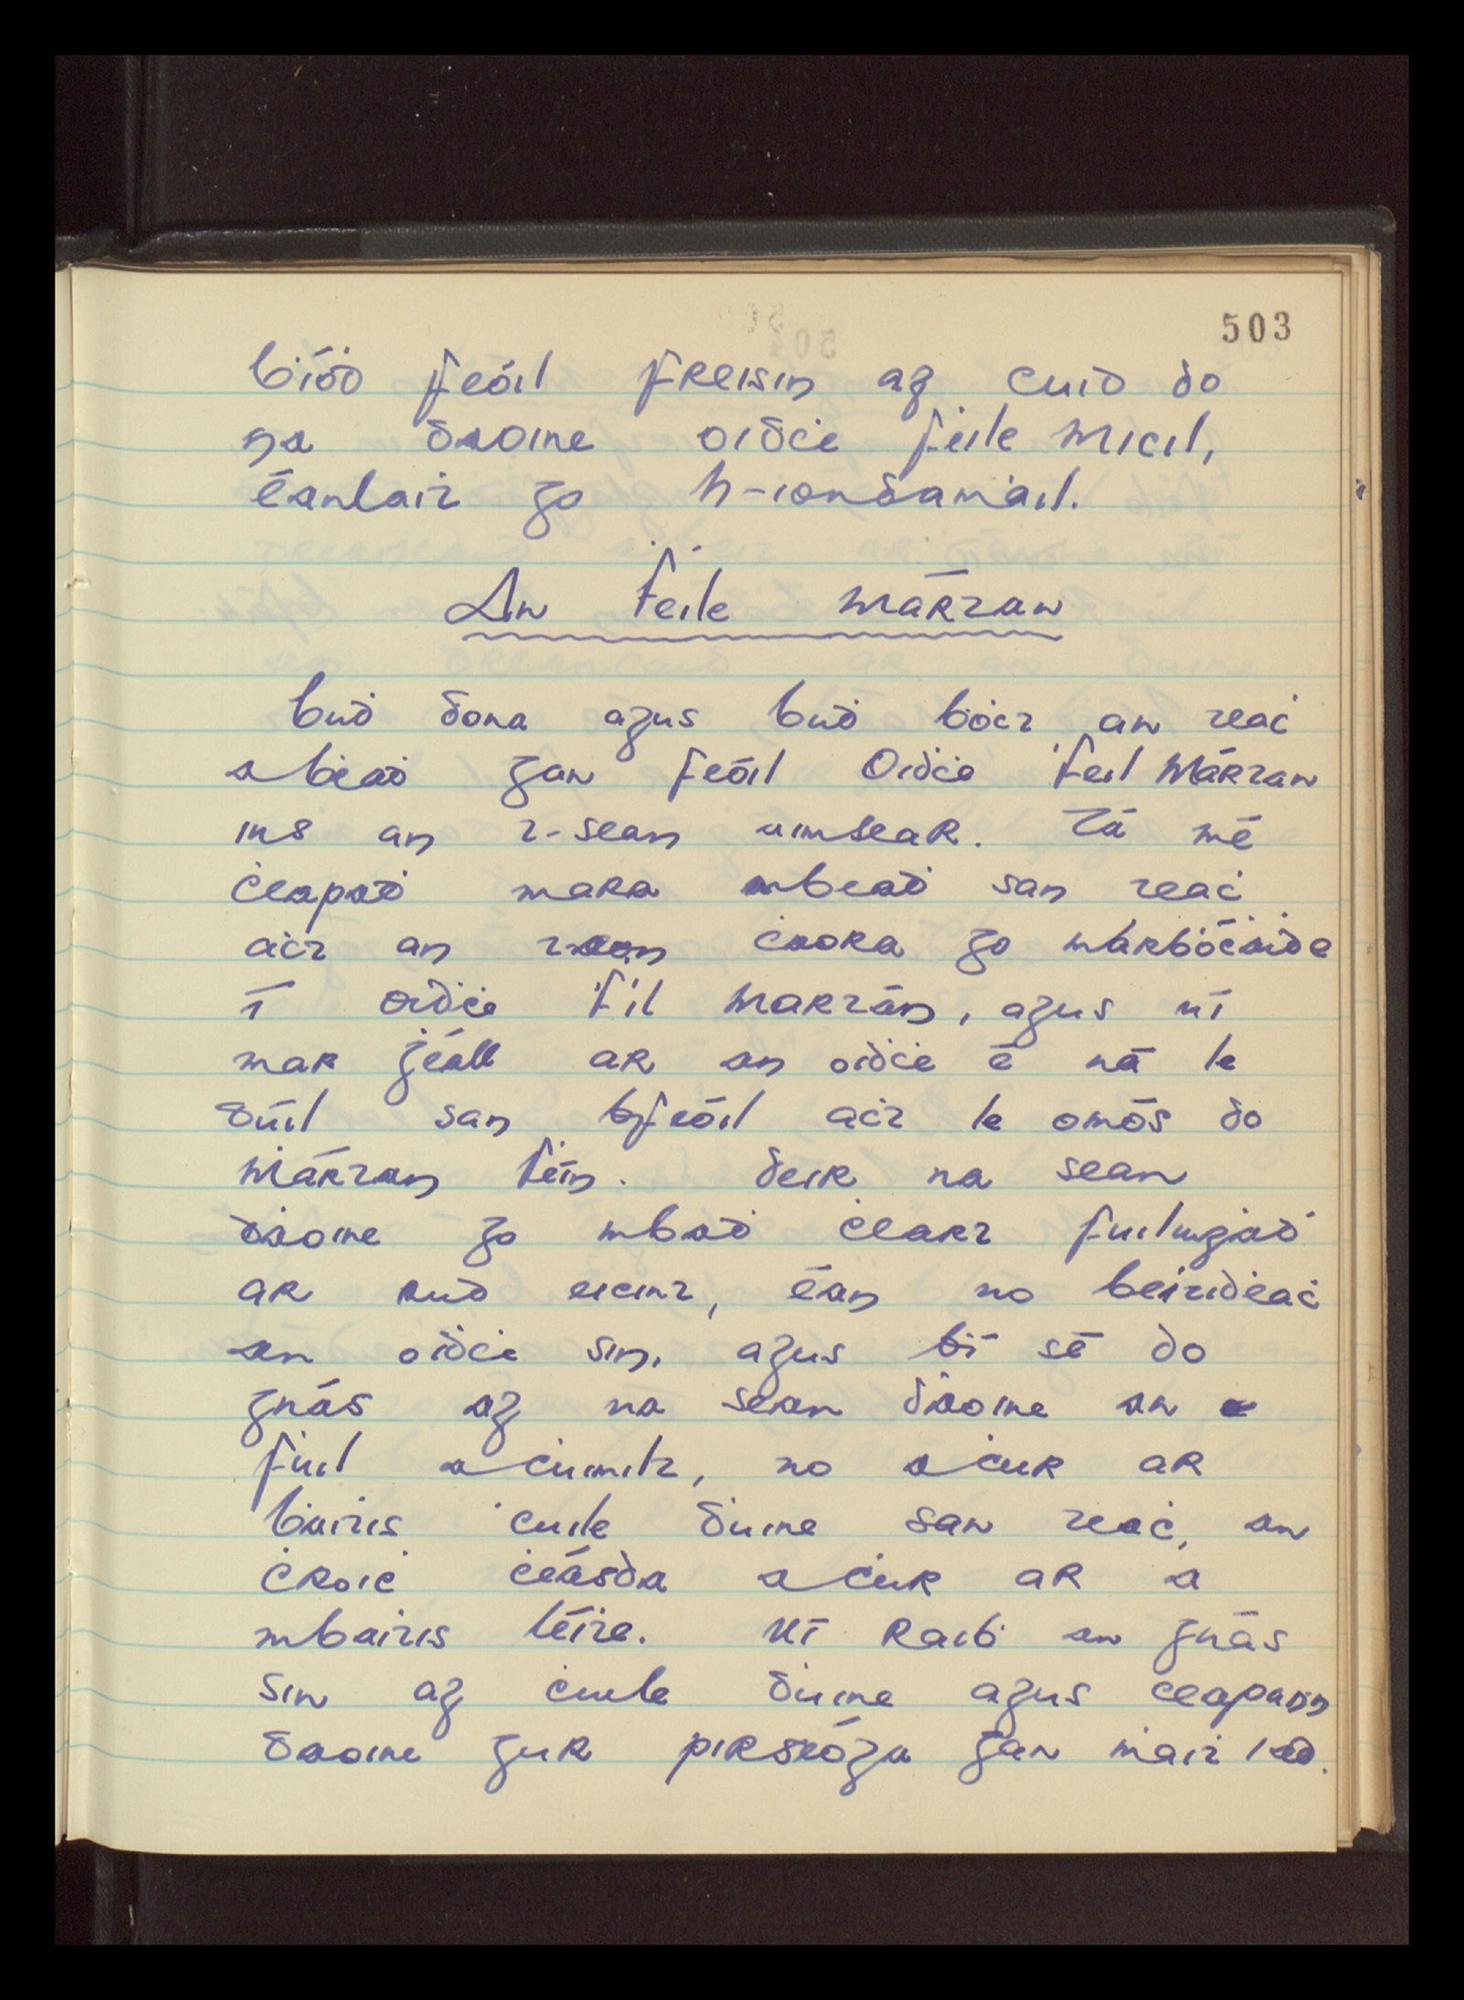 503
ḃíoḋ feóil freisin ag cuid do
na daoine oiḋċe féile Miċíl,
éanlaiṫ go h-iondaṁail.
An Ḟéile Mártan
buḋ dona agus buḋ ḃoċt an teaċ
a ḃeaḋ gan feóil Oiḋċe Ḟéil Mártan
ins an t-sean aimsear. Tá mé
ċeapaḋ mara mbeaḋ san teaċ
aċt an t-aon ċaora go marḃóċaiḋe
í oiḋċe Ḟéil Martán, agus ní
mar ġeall ar an oiḋċe é ná le
dúil san bfeóil aċt le omós do
Mártan féin. Deir na sean
ḋaoine go mbaḋ ċeart fuiliuġaḋ
ar rud eicint, éan no beiṫiḋeaċ
an oiḋċe sin, agus bí sé do
gnás ag na sean ḋaoine an
ḟuil a ċuimilt, no a ċur ar
ḃaiṫis 'ċuile ḋuine san teaċ, an
ċroiċ ċéasda a ċur ar a
mbaiṫis léiṫe. Ní raiḃ an gnás
sin ag ċuile ḋuine agus ceapann
daoine gur pisreóga gan ṁaiṫ iad.